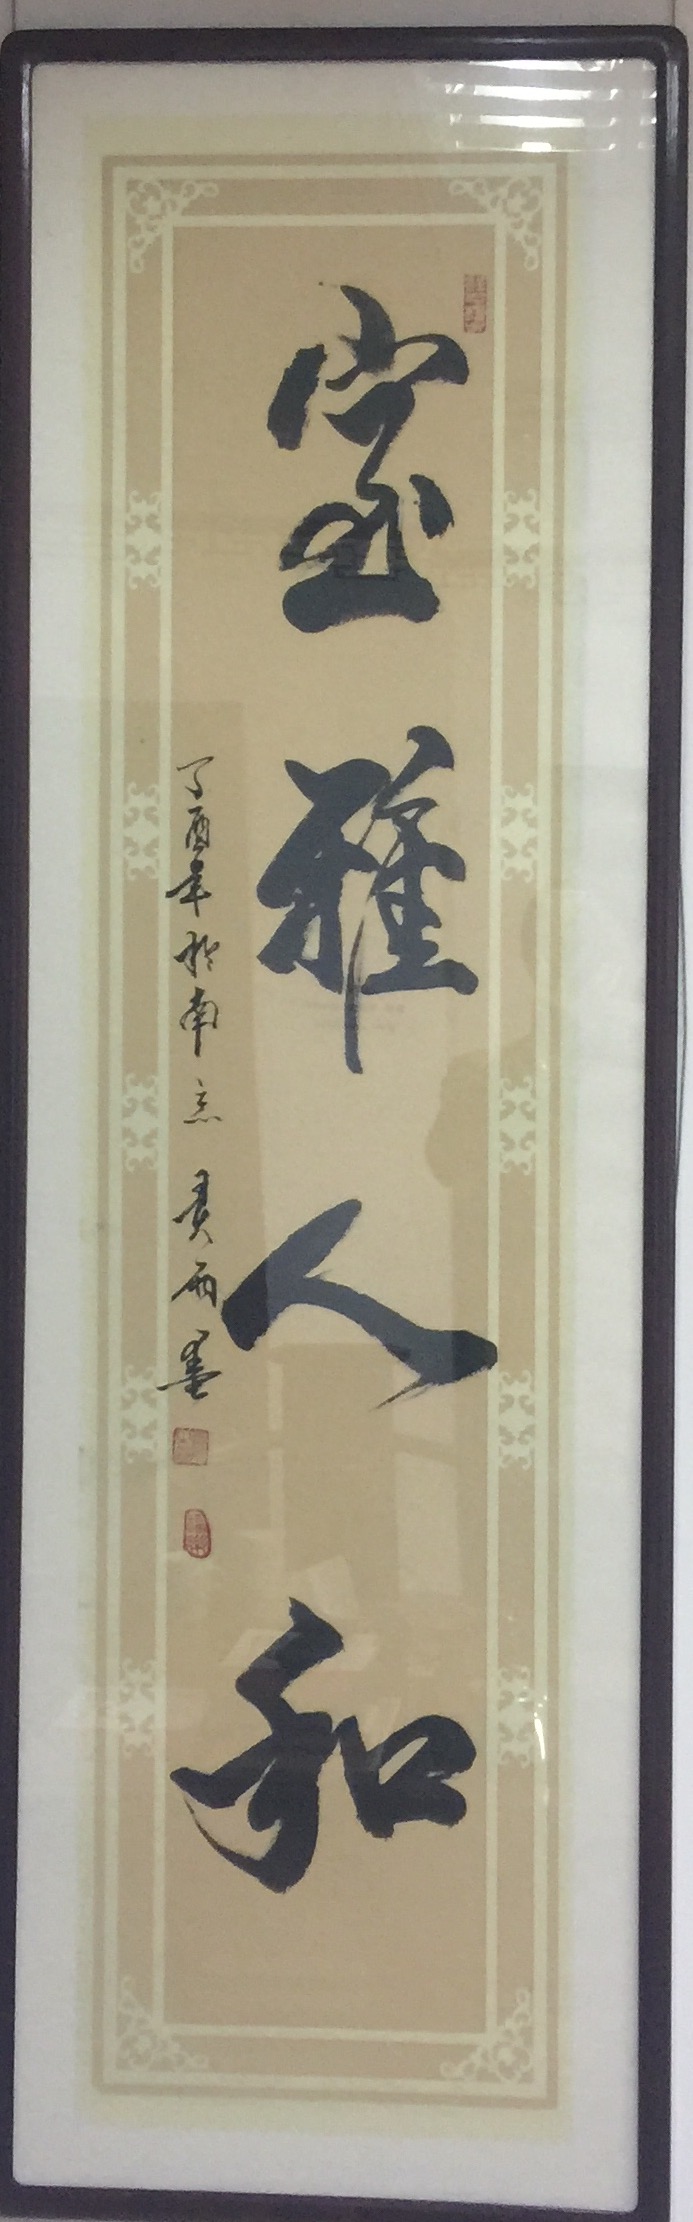 室雅人和
丁酉年於南京 费雨墨